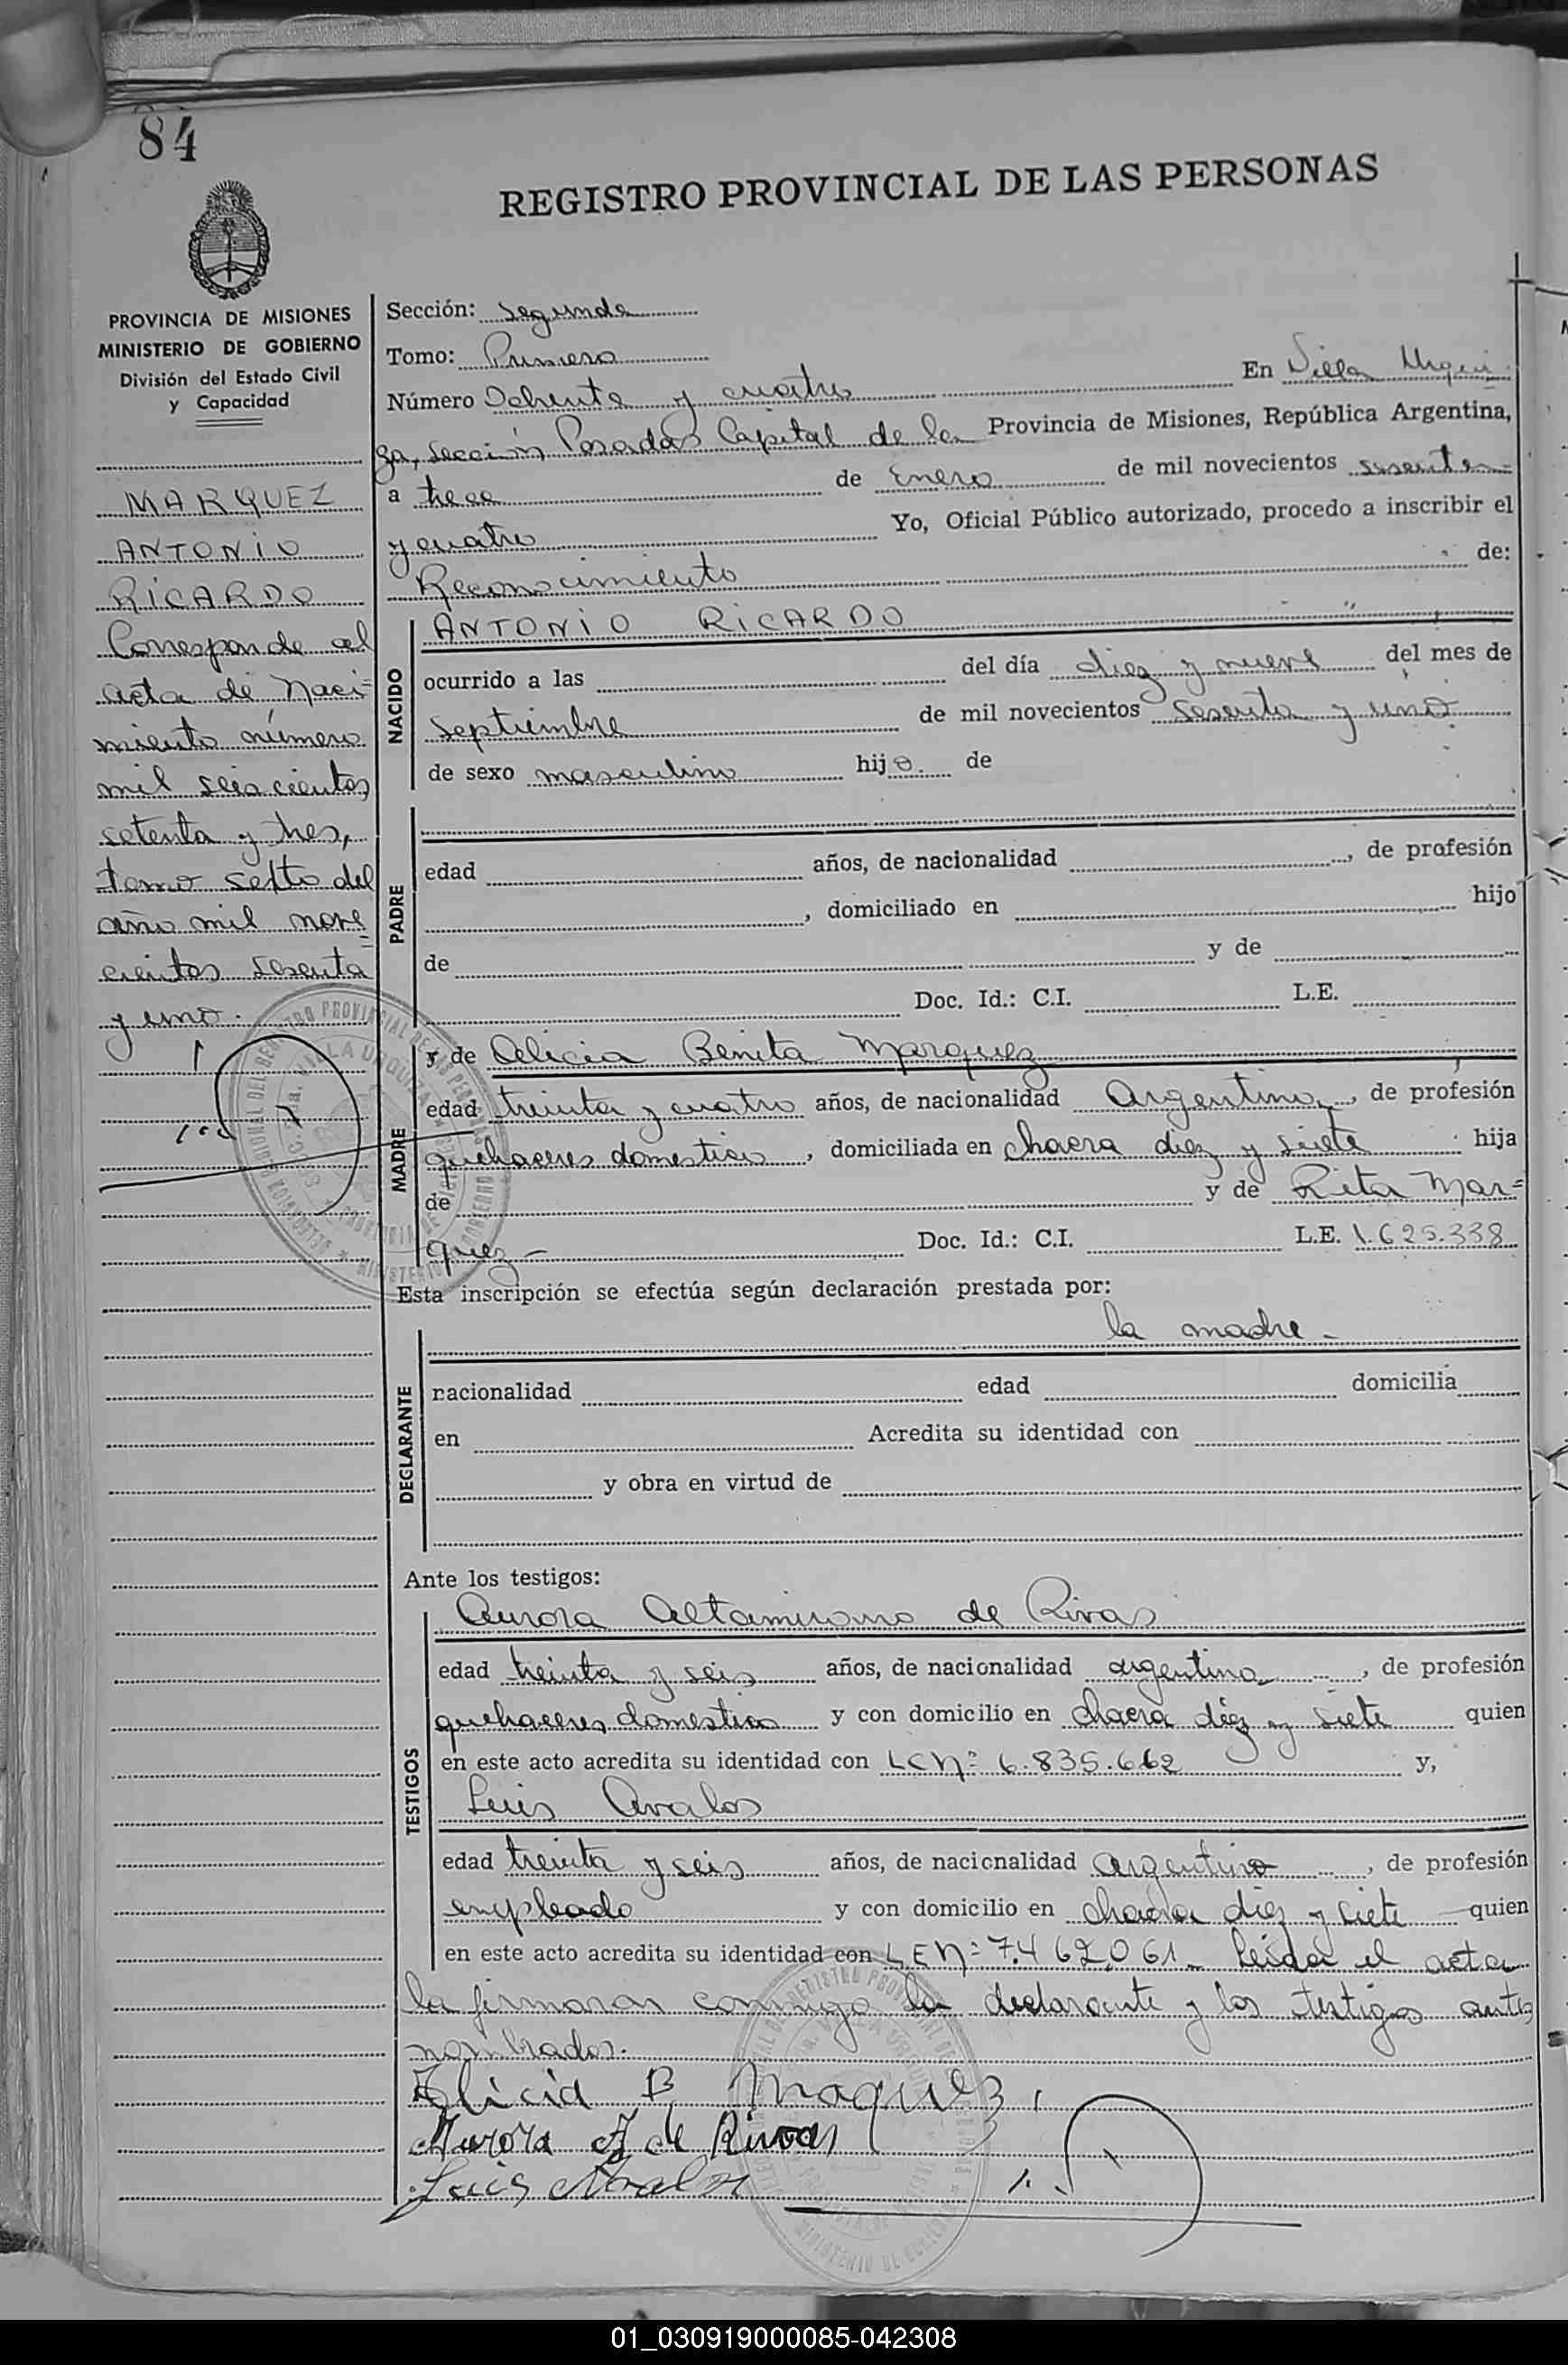 84
REGISTRO PROVINCIAL DE LAS PERSONAS
PROVINCIA DE MISIONES
MINISTERIO DE GOBIERNO
División del Estado Civil
y Capacidad
MARQUEZ
ANTONIO
RICARDO
Corresponde al
acta de Naci=
miento número
mil seiscientos
setenta y tres,
tomo sexto del
año mil nove
cientos sesenta
y uno.
Sección: Segunda
Tomo: Primero
Número Ochenta y cuatro En Villa Urqui
za, sección Posadas Capital de la Provincia de Misiones, República Argentina,
a trece de Enero de mil novecientos sesenta
y cuatro Yo, Oficial Público autorizado, procedo a inscribir el
Reconocimiento de:
NACIDO
ANTONIO RICARDO
ocurrido a las del día diez y nueve del mes de
septiembre de mil novecientos sesenta y uno
de sexo masculino hijo de
PADRE
edad años, de nacionalidad , de profesión
, domiciliado en hijo
de y de
Doc. Id.: C.I. L.E.
MADRE
y de Alicia Benita Marquez
edad treinta y cuatro años, de nacionalidad Argentina, de profesión
quehaceres domesticos, domiciliada en chacra diez y siete hija
de y de Rita Mar=
quez - Doc. Id.: C.I. L.E. 1.625.338
Esta inscripción se efectúa según declaración prestada por:
DECLARANTE
la madre -
nacionalidad edad domicilia
en Acredita su identidad con
y obra en virtud de
Ante los testigos:
TESTIGOS
Aurora Altamirano de Rivas
edad treinta y seis años, de nacionalidad argentina, de profesión
quehaceres domesticos y con domicilio en chacra diez y siete quien
en este acto acredita su identidad con LCNº 6.835.662 y,
Luis Avalos
edad treinta y seis años, de nacionalidad argentino, de profesión
empleado y con domicilio en chacra diez y siete quien
en este acto acredita su identidad con LENº 7.462.061 Leida el acta
la firmaron conmigo la declarante y los testigos antes
nombrados.
Alicia B Maquez
Aurora A de Rivas
Luis Avalos
01_030919000085-042308